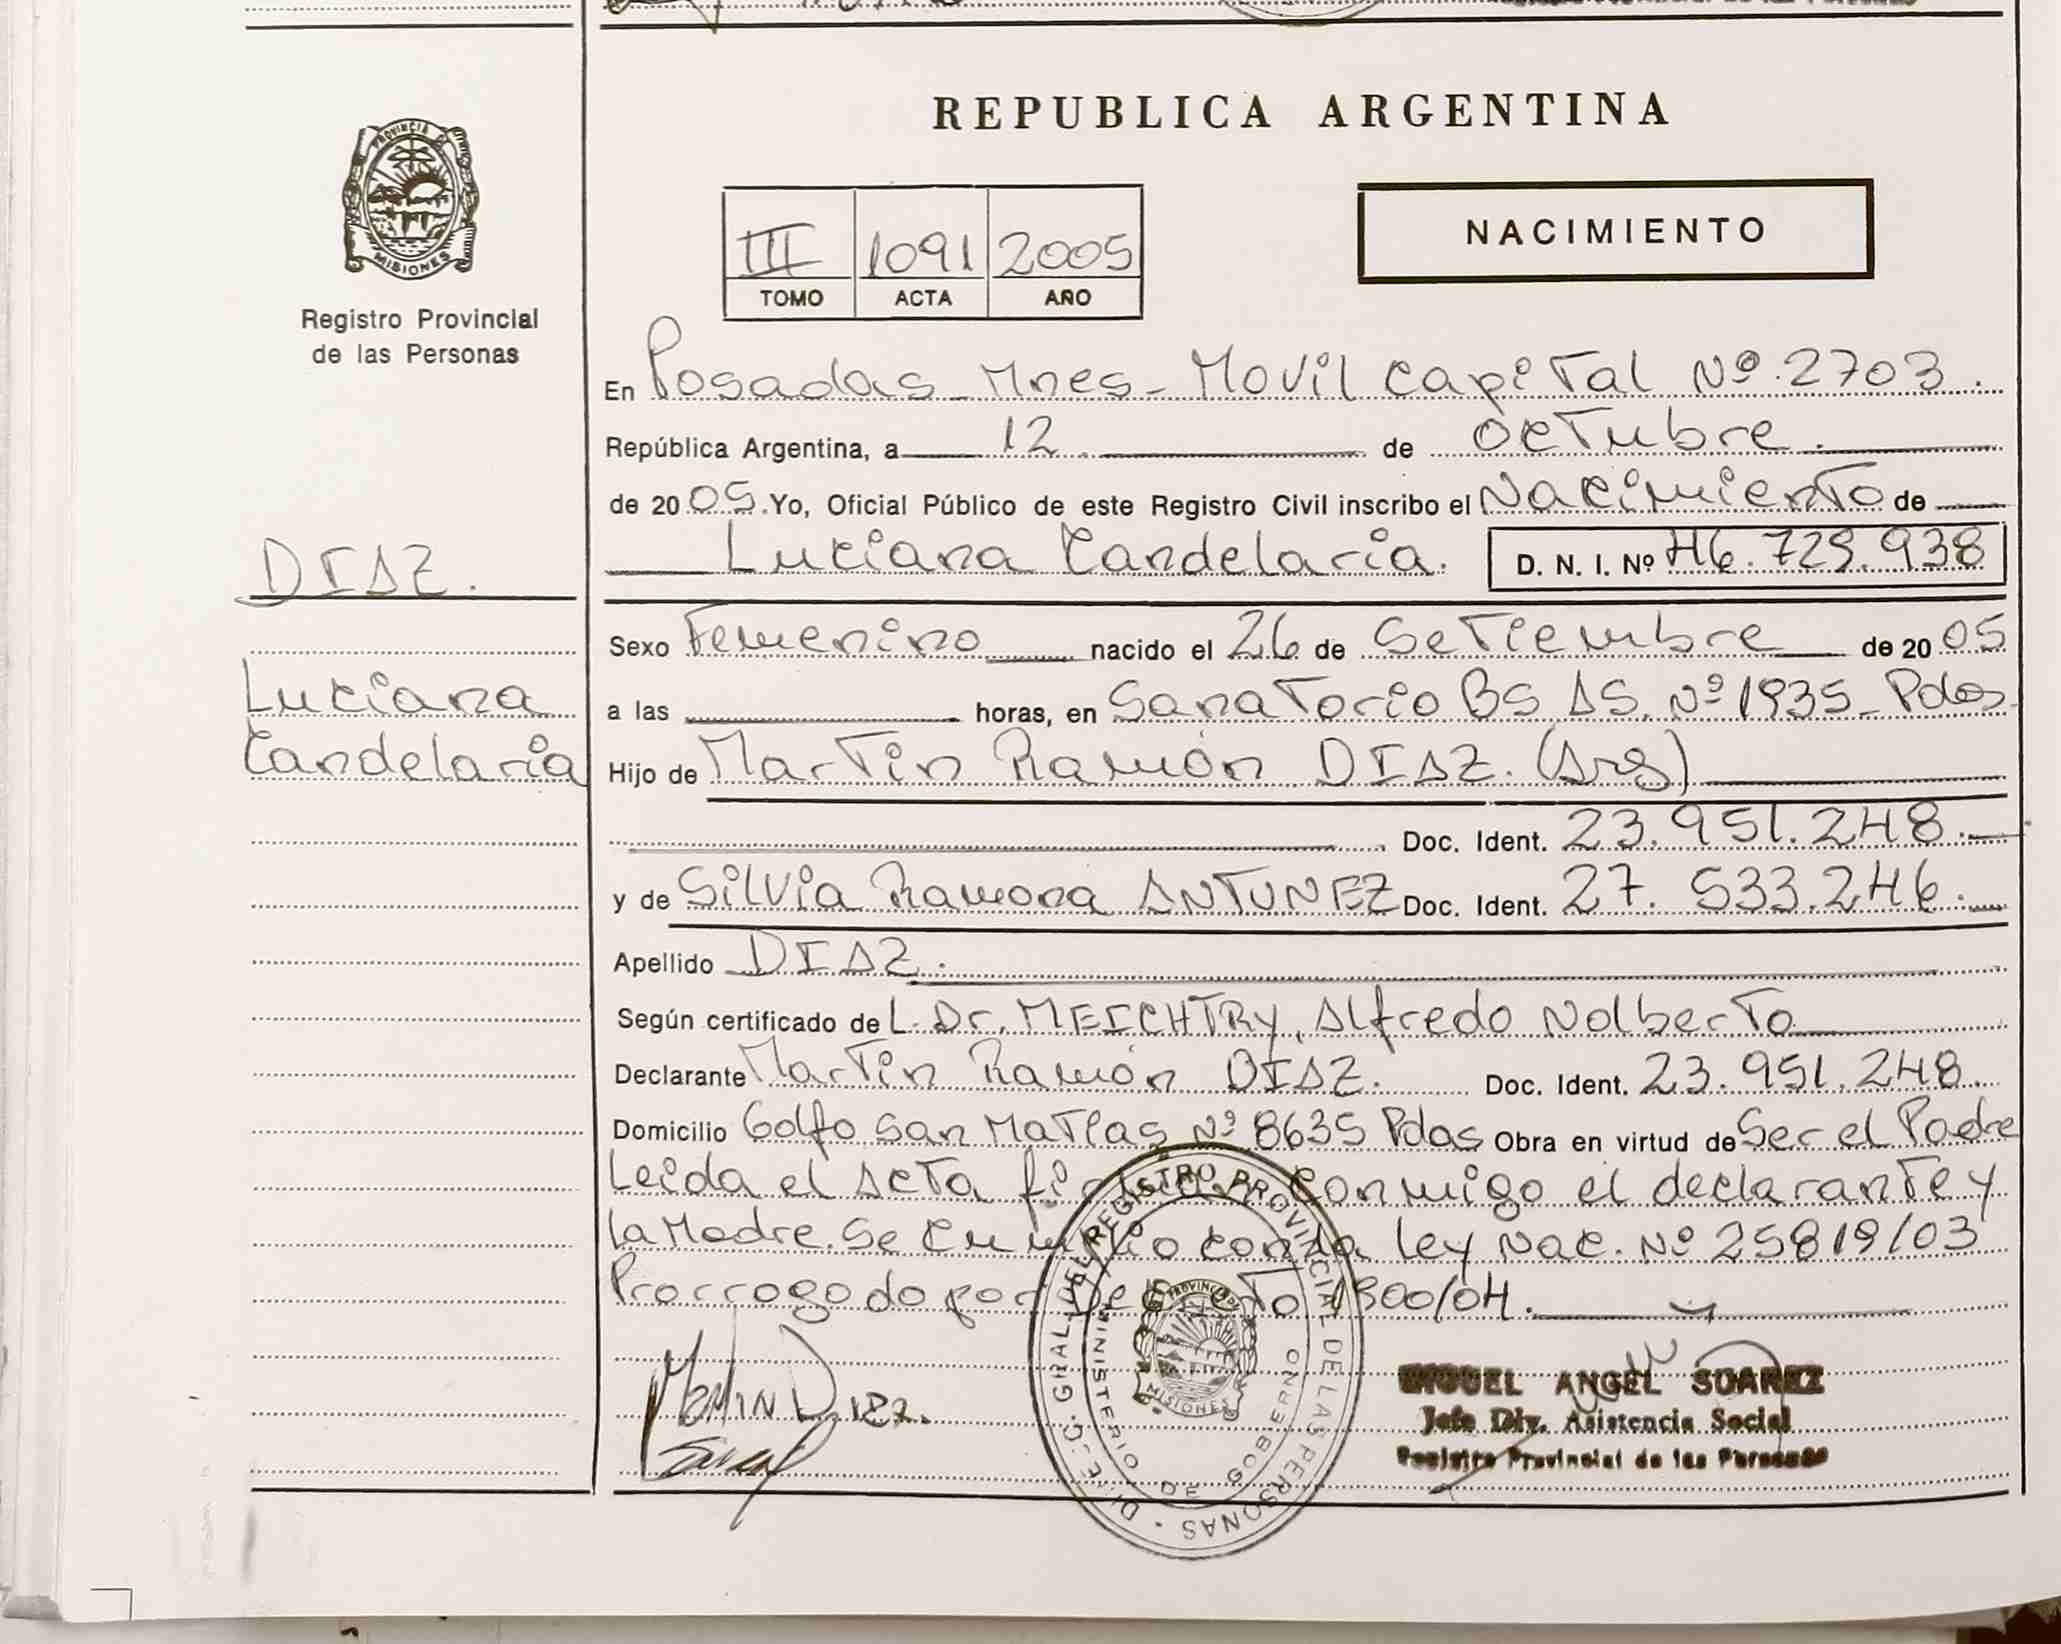 REPUBLICA ARGENTINA
PROVINCIA DE
MISIONES
Registro Provincial
de las Personas
III 1091 2005
TOMO ACTA AÑO
NACIMIENTO
En Posadas - Mnes - Movil Capital Nº 2703.
República Argentina, a 12 de octubre.
de 2005. Yo, Oficial Público de este Registro Civil inscribo el Nacimiento de
DIAZ.
Luciana Candelaria. D. N. I. Nº 46.729.938
Sexo Femenino nacido el 26 de Setiembre de 2005
Luciana
Candelaria
a las horas, en Sanatorio Bs As. Nº 1935 - Pdas.
Hijo de Martin Ramón DIAZ. (Arg)
Doc. Ident. 23.951.248.
y de Silvia Ramona ANTUNEZ Doc. Ident. 27.533.246.
Apellido DIAZ.
Según certificado de L. Dr. MEICHTRY, Alfredo Nolberto
Declarante Martin Ramón DIAZ. Doc. Ident. 23.951.248.
Domicilio Golfo San Matias Nº 8635 Pdas Obra en virtud de Ser el Padre
Leida el Acta conmigo el declarante y
la Madre. Se cumplio con la ley Nac. Nº 25819/03
Prorrogado por Decreto 1300/04.
Martin Diaz.
DIREC. GRAL. DEL REGISTRO PROVINCIAL DE LAS PERSONAS
MINISTERIO DE GOBIERNO
PROVINCIA DE
MISIONES
MIGUEL ANGEL SUAREZ
Jefe Div. Asistencia Social
Registro Provincial de las Personas